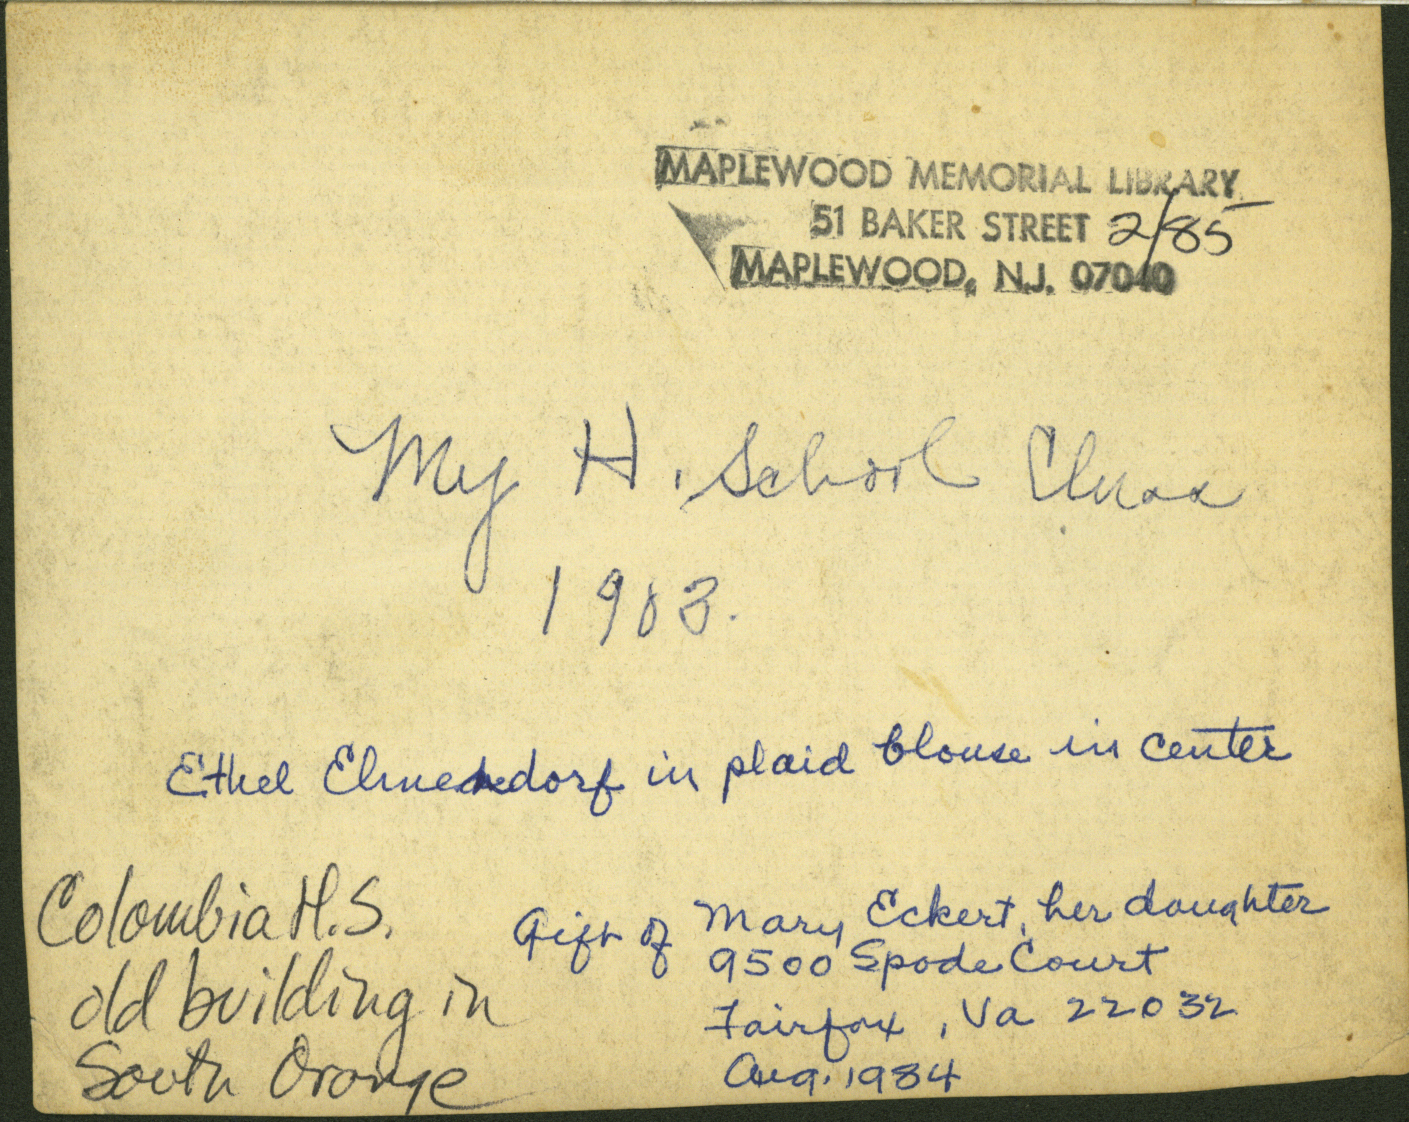 MAPLEWOOD MEMORIAL LIBRARY
51 BAKER STREET 2/85
MAPLEWOOD, N.J. 07040
My H. School Class
1903.
Ethel Elmendorf in plaid blouse in center
Colombia H.S.
old building in
South Orange
Gift of Mary Eckert, her daughter
9500 Spode Court
Fairfax, Va 22032
Aug. 1984